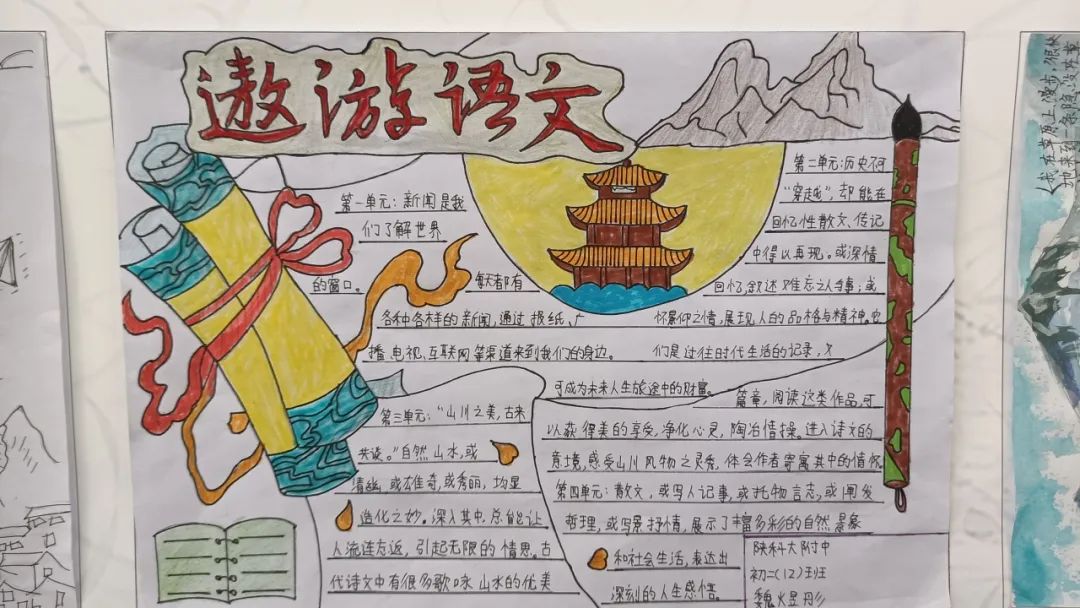 遨游语文
第一单元：新闻是我
们了解世界
的窗口。
每天都有
各种各样的新闻，通过报纸、广
播、电视、互联网等渠道来到我们的身边。
第二单元：历史不可
“穿越”，却能在
回忆性散文、传记
中得以再现。或深情
回忆，叙述难忘之人与事；或
怀景仰之情，展现人的品格与精神。它
们是过往时代生活的记录，又
可成为未来人生旅途中的财富。
第三单元：“山川之美，古来
共谈。”自然山水，或
清幽，或雄奇，或秀丽，均显
造化之妙。深入其中，总能让
人流连忘返，引起无限的情思。古
代诗文中有很多歌咏山水的优美
篇章，阅读这类作品，可
以获得美的享受，净化心灵，陶冶情操。进入诗文的
意境，感受山川风物之灵秀，体会作者寄寓其中的情怀
第四单元：散文，或写人记事，或托物言志，或阐发
哲理，或写景抒情，展示了丰富多彩的自然景象
和社会生活，表达出
深刻的人生感悟。
陕科大附中
初二（12）班
魏煜彤